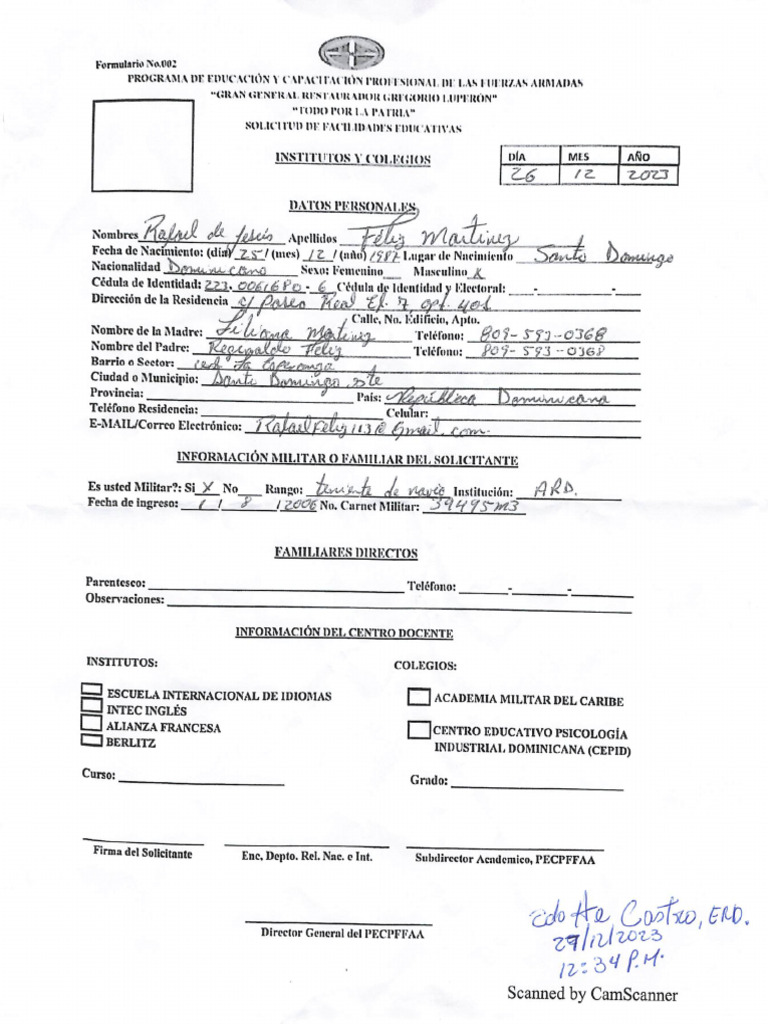 Formulario No.002
PROGRAMA DE EDUCACIÓN Y CAPACITACIÓN PROFESIONAL DE LAS FUERZAS ARMADAS
“GRAN GENERAL RESTAURADOR GREGORIO LUPERÓN”
“TODO POR LA PATRIA”
SOLICITUD DE FACILIDADES EDUCATIVAS
INSTITUTOS Y COLEGIOS
DÍA MES AÑO
26 12 2023
DATOS PERSONALES
Nombres Rafael de Jesús Apellidos Féliz Martinez
Fecha de Nacimiento: (día) 25 / (mes) 12 / (año) 1987 Lugar de Nacimiento Santo Domingo
Nacionalidad Dominicano Sexo: Femenino Masculino X
Cédula de Identidad: 223-0061680-6 Cédula de Identidad y Electoral: - -
Dirección de la Residencia c/ Paseo Real Ef. 7, apt. 401
Calle, No. Edificio, Apto.
Nombre de la Madre: Liliana Martinez Teléfono: 809-593-0368
Nombre del Padre: Reginaldo Feliz Teléfono: 809-593-0368
Barrio o Sector: La Esperanza
Ciudad o Municipio: Santo Domingo este
Provincia: País: República Dominicana
Teléfono Residencia: Celular:
E-MAIL/Correo Electrónico: RafaelFeliz113@Gmail.com
INFORMACIÓN MILITAR O FAMILIAR DEL SOLICITANTE
Es usted Militar?: Si X No Rango: teniente de navio Institución: ARD.
Fecha de ingreso: 1 / 8 / 2006 No. Carnet Militar: 39495m3
FAMILIARES DIRECTOS
Parentesco: Teléfono: - -
Observaciones:
INFORMACIÓN DEL CENTRO DOCENTE
INSTITUTOS: COLEGIOS:
ESCUELA INTERNACIONAL DE IDIOMAS
INTEC INGLÉS
ALIANZA FRANCESA
BERLITZ
ACADEMIA MILITAR DEL CARIBE
CENTRO EDUCATIVO PSICOLOGÍA
INDUSTRIAL DOMINICANA (CEPID)
Curso: Grado:
Firma del Solicitante Enc. Depto. Rel. Nac. e Int. Subdirector Academico, PECPFFAA
Director General del PECPFFAA
Castro, ERD.
29/12/2023
12:34 P.M.
Scanned by CamScanner